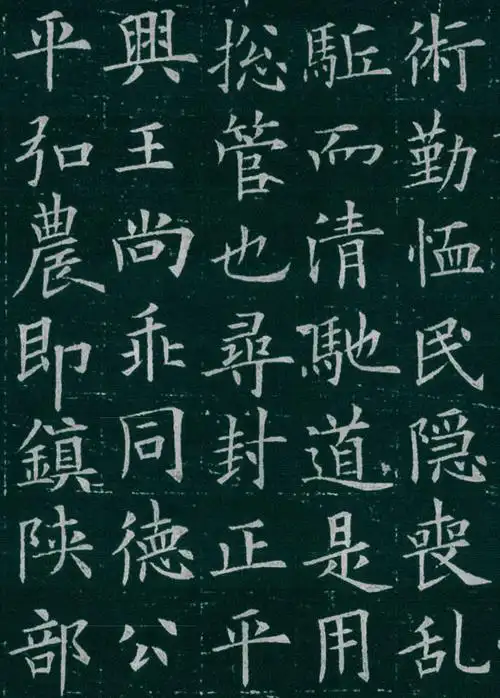 術勤恤民隠喪乱
駈而清馳道是用
捴管也尋封正平
興王尚乖同德公
平弘農即鎮陝部